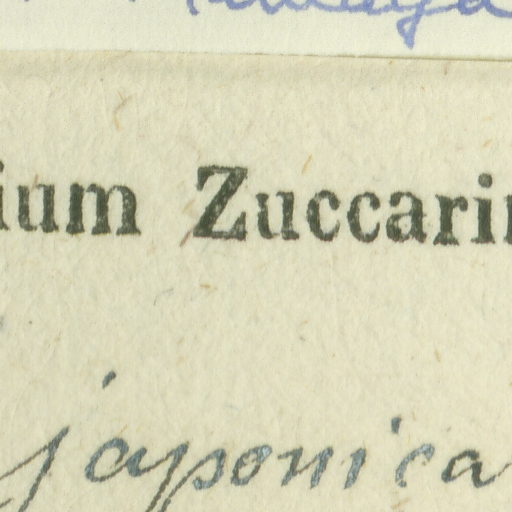 ium Zuccarin
japonica